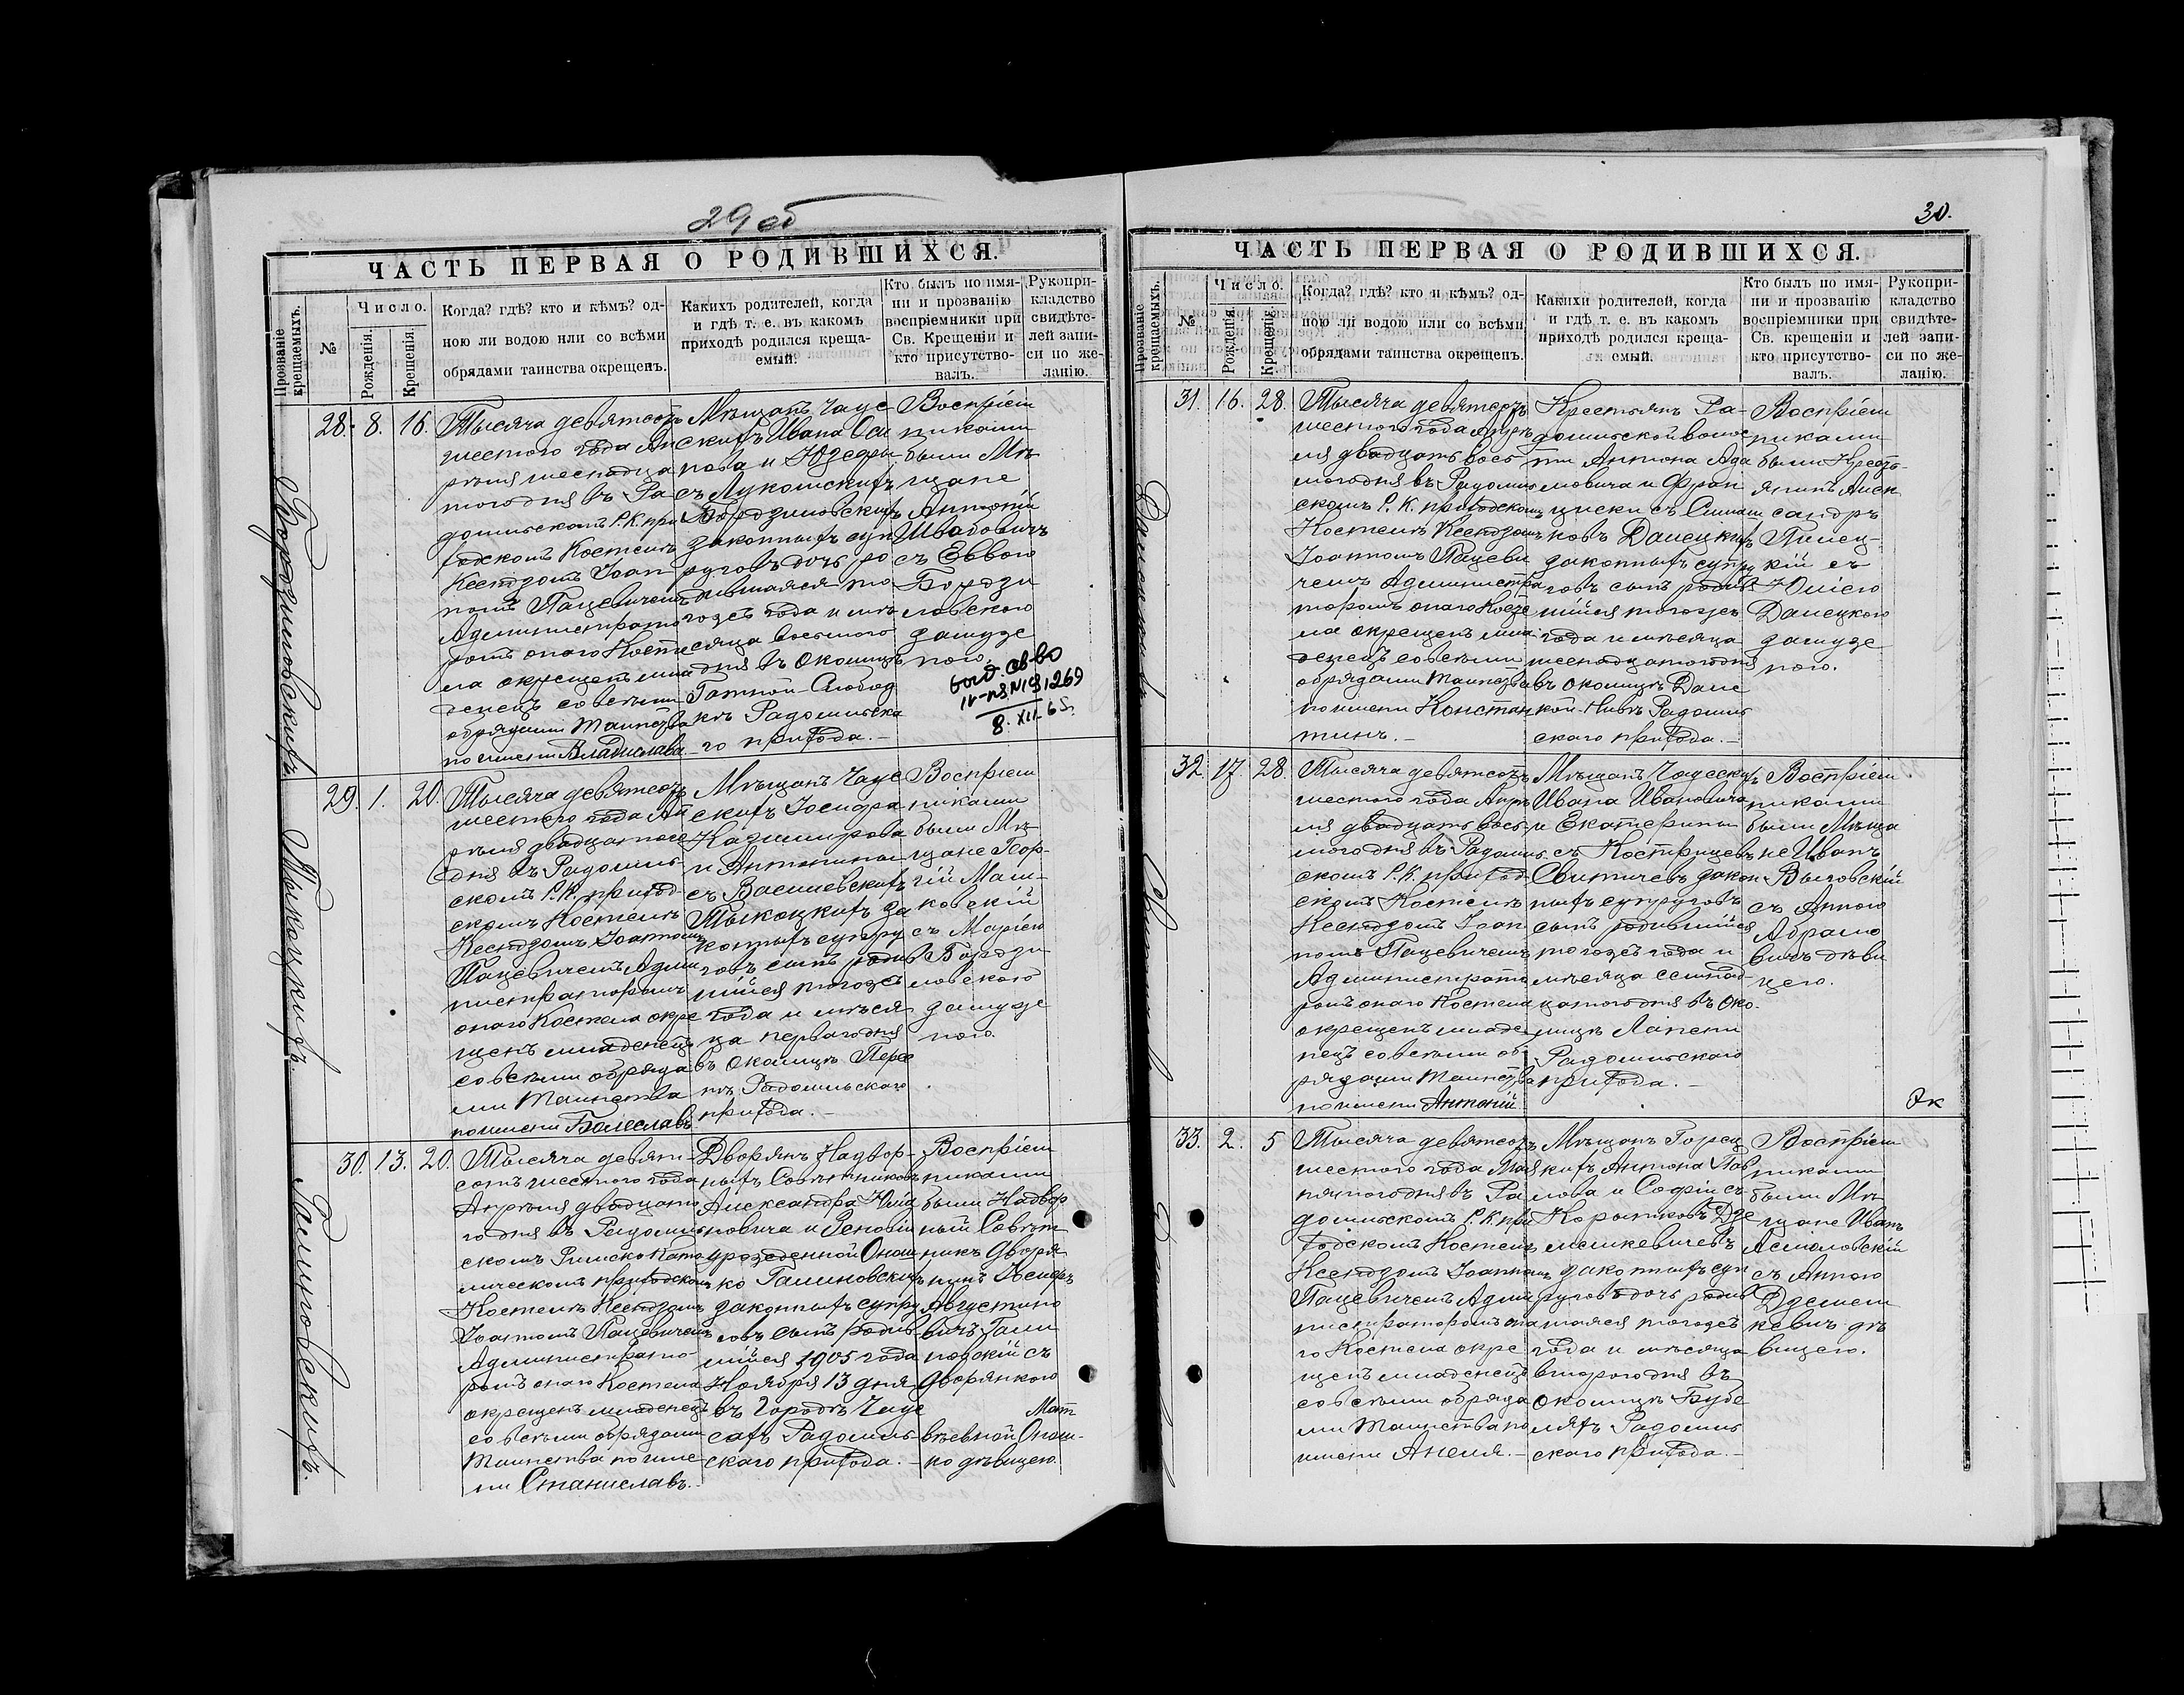 29 об
ЧАСТЬ ПЕРВАЯ О РОДИВШИХСЯ.
Прозваніе крещаемыхъ.
№
Число.
Рожденія.
Крещенія.
Когда? гдѣ? кто и кѣмъ? од-
ною ли водою или со всѣми
обрядами таинства окрещенъ.
Какихъ родителей, когда
и гдѣ т. е. въ какомъ
приходѣ родился креща-
емый.
Кто былъ по имя-
ни и прозванію
воспріемники при
Св. Крещеніи и
кто присутство-
валъ.
Рукопри-
кладство
свидѣте-
лей запи-
си по же-
ланію.
Бордзиловскихъ
28. 8. 16.
Тысяча девятсотъ
шестого года Ап
рѣля шестнадца
того дня въ Ра
домльскомъ Р. К. при
ходскомъ Костелѣ
Ксендзомъ Іоан
номъ Пацевичемъ
Администрато
ромъ онаго Косте
ла окрещенъ мла
денецъ со всѣми
обрядами Таинства
по имени Владислава
Мѣщанъ Чаус
скихъ Ивана Оси
пова и Юзефы
съ Лукомскихъ
Бордзиловскихъ
законныхъ суп
руговъ дочь ро
дившаяся то
гоже года и мѣ
сяца восьмого
дня въ околицѣ
Гатной-Слобод
кѣ Радомльска
го прихода.-
Воспріем
никами
были Мѣ
щане
Антоній
съ Еввою
Бордзи
ловскою
замуж
ною.
8. XII-65.
Тыкоцкихъ
29. 1. 20.
Тысяча девятсотъ
шестого года Ап
рѣля двадцатого
дня въ Радомль
скомъ Р. К. приход
скомъ Костелѣ
Ксендзомъ Іоанномъ
Пацевичемъ Адми
нистраторомъ
онаго Костела окре
щенъ младенецъ
со всѣми обряда
ми Таинства
по имени Болеславъ
Мѣщанъ Чаус
скихъ Іосифа
Казимирова
и Антонины
съ Василевскихъ
Тыкоцкихъ за
конныхъ супру
говъ сынъ родив
шійся тогоже
года и мѣся
ца перваго дня
въ околицѣ Пере
Радомльскаго
прихода.-
Воспріем
никами
были Мѣ
щане Геор-
гій Мали-
ковскій
съ Маріею
Бордзи-
ловскою
замуж
ною.
Галиновскихъ.
30. 13. 20.
Тысяча девят-
сотъ шестого года
Апрѣля двадцато
го дня въ Радомль
скомъ Римско Като
лическомъ приходскомъ
Костелѣ Ксендзомъ
Іоанномъ Пацевичемъ
Администрато-
ромъ онаго Костела
окрещенъ младенецъ
со всѣми обрядами
Таинства по име
ни Станиславъ.
Дворянъ Надвор-
ныхъ Совѣтниковъ
Александра Юлiа
новича и Зеновіи
урожденной Онош
ко Галиновскихъ
законныхъ супру
говъ сынъ родив
шійся 1905 года
Ноября 13 дня
въ Городѣ Чаус
сахъ Радомль
скаго прихода.-
Воспріем
никами
были Надвор
ный Совѣт
никъ Дворя
нинъ Іосифъ
Августино
вичъ Гали
новскій съ
Дворянкою
Мат
вѣевной Онош-
ко дѣвицею.
30.
ЧАСТЬ ПЕРВАЯ О РОДИВШИХСЯ.
Прозваніе крещаемыхъ.
№
Число.
Рожденія.
Крещенія.
Когда? гдѣ? кто и кѣмъ? од-
ною ли водою или со всѣми
обрядами таинства окрещенъ.
Какихи родителей, когда
и гдѣ т. е. въ какомъ
приходѣ родился креща-
емый.
Кто былъ по имя-
ни и прозванію
воспріемники при
Св. Крещеніи и
кто присутство-
валъ.
Рукопри-
кладство
свидѣте-
лей запи-
си по же-
ланію.
31. 16. 28.
Тысяча девятсотъ
шестого года Апрѣ
ля двадцать вось
мого дня въ Радомль
скомъ Р. К. приходскомъ
Костелѣ Ксендзомъ
Іоанномъ Пацеви
чемъ Администра
торомъ онаго Косте
ла окрещенъ мла
денецъ со всѣми
обрядами Таинства
по имени Констан
тинъ.-
Крестьянъ Ра-
домльской волос
ти Антона Ада
мовича и Фран
циски съ
Данецкихъ
законныхъ супру
говъ сынъ родив
шійся тогоже
года и мѣсяца
шестнадцатого дня
въ околицѣ Дане
Радомль
скаго прихода.-
Воспріем
никами
были Крестъ-
янинъ Алек
сандръ
кій съ
Юліею
Данецкою
замуж
ною.
32. 17. 28.
Тысяча девятсотъ
шестого года Апрѣ
ля двадцать вось-
мого дня въ Радомль-
скомъ Р. К. приход
скомъ Костелѣ
Ксендзомъ Іоан
номъ Пацевичемъ
Администрато
ромъ онаго Костела
окрещенъ младе
нецъ со всѣми об
рядами Таинства
по имени Антоній
Мѣщанъ Чаусски
хъ Ивана Ивановича
и Екатерины
съ
закон
ныхъ супруговъ
сынъ родившійся
тогоже года и
мѣсяца семнад-
цатого дня въ око
лицѣ
Радомльскаго
прихода.-
Воспріем
никами
были Мѣща
не Иванъ
Выговскій
съ Анною
Абрамо
вичъ дѣви
цею.
33. 2. 5
Тысяча девятсотъ
шестого года Мая
пятого дня въ Ра
домльскомъ Р. К. при
ходскомъ Костелѣ
Ксендзомъ Іоанномъ
Пацевичемъ Адми
нистраторомъ она
го Костела окре
щенъ младенецъ
со всѣми обряда
ми Таинства по
имени Анеля.-
Мѣщанъ Горец
кихъ Антона Пав
лова и Софіи съ
Дзе
мешкевичевъ
законныхъ суп
руговъ дочь родив
шаяся тогоже
года и мѣсяца
второго дня въ
околицѣ
Радомль
скаго прихода.-
Воспріем
никами
были Мѣ
щане Иванъ
съ Анною
Дземеш
кевичъ дѣ
вицею.